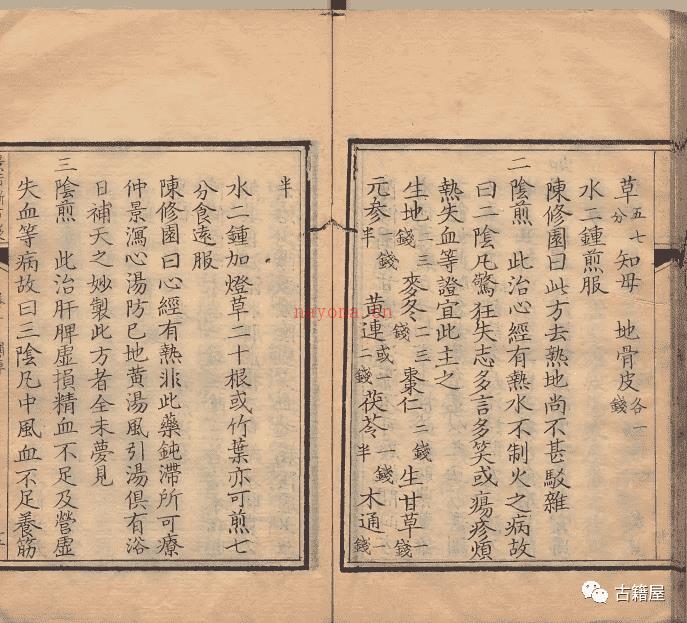 草五七分 知母 地骨皮各一錢
水二鍾煎服
陳修園曰此方去熟地尚不甚駁雜
二陰煎 此治心經有熱水不制火之病故
曰二陰凡驚狂失志多言多笑或瘍疹煩
熱失血等證宜此主之
生地二三錢 麥冬二三錢 棗仁二錢 生甘草一錢
元參一錢半 黃連或一二錢 茯苓一錢半 木通一錢
半
水二鍾加燈草二十根或竹葉亦可煎七
分食遠服
陳修園曰心經有熱非此藥鈍滯所可療
仲景瀉心湯防已地黃湯風引湯俱有浴
日補天之妙製此方者全未夢見
三陰煎 此治肝脾虛損精血不足及營虛
失血等病故曰三陰凡中風血不足養筋
nayona.cn
古籍屋